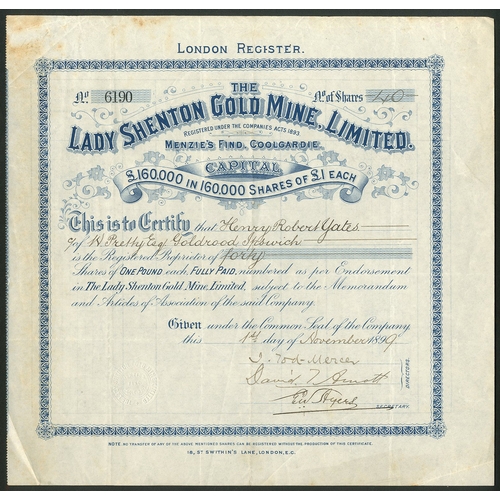 LONDON REGISTER.
No. 6190 No. of Shares 40
THE
LADY SHENTON GOLD MINE, LIMITED.
REGISTERED UNDER THE COMPANIES ACTS 1893.
MENZIE'S FIND, COOLGARDIE.
CAPITAL
£160,000 IN 160,000 SHARES OF £1 EACH
This is to Certify that Henry Robert Yates
of B. Pretty Esq Goldrood Ipswich
is the Registered Proprietor of forty
Shares of ONE POUND each, FULLY PAID, numbered as per Endorsement
in The Lady Shenton Gold Mine, Limited, subject to the Memorandum
and Articles of Association of the said Company.
Given under the Common Seal of the Company
this 1st day of November 1899
DIRECTORS.
SECRETARY.
NOTE NO TRANSFER OF ANY OF THE ABOVE MENTIONED SHARES CAN BE REGISTERED WITHOUT THE PRODUCTION OF THIS CERTIFICATE.
18, ST SWITHIN'S LANE, LONDON, E.C.